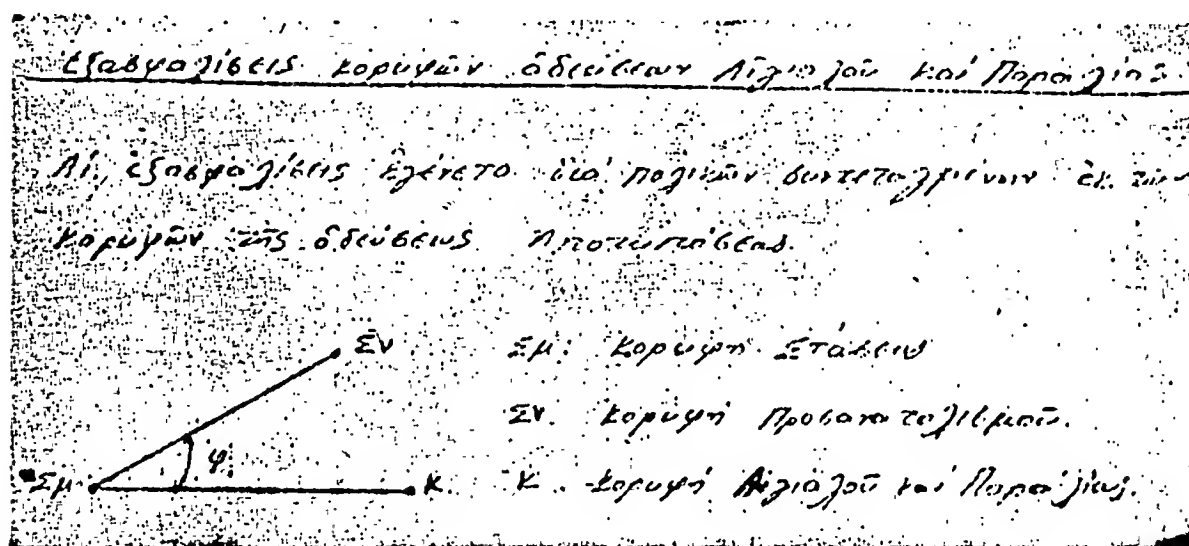 Ἐξασφαλίσεις κορυφῶν ὁδεύσεων Αἰγιαλοῦ καί Παραλίας.
Αἱ ἐξασφαλίσεις ἐγένετο διά πολικῶν συντεταγμένων ἐκ τῶν
κορυφῶν τῆς ὁδεύσεως Ἀποτυπώσεως.
Σν
Σμ: Κορυφή Στάσεως
Σν. Κορυφή Προσανατολισμοῦ.
φ.
Σμ
Κ.
Κ. Κορυφή Αἰγιαλοῦ καί Παραλίας.